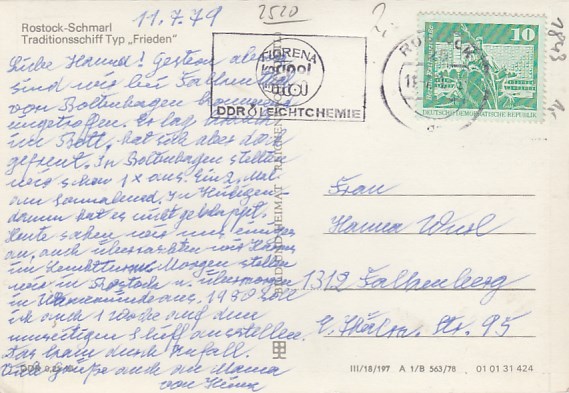 Rostock-Schmarl
Traditionsschiff Typ „Frieden“
11.7.79
2520
FLORENA
DDR LEICHTCHEMIE
ROSTOCK
10
DEUTSCHE DEMOKRATISCHE REPUBLIK
1843
Liebe Hanna! Gestern abend
sind wir bei
von Boltenhagen kommend
eingetroffen. Er lag
im Bett, hat sich aber doch
gefreut. In Boltenhagen stellten
wir schon 1 x aus. Ein 2. Mal
am Sonnabend. In Heiligen-
damm hat es nicht geklappt.
Heute sahen wir uns
an, auch übernachten wir
im Leuchtturm. Morgen stellen
wir in Rostock u. übermorgen
in Warnemünde aus. 1980 soll
ich auch 1 Woche auf dem
Schiff ausstellen.
Das kam durch Zufall.
Viele Grüße auch an Mama
von
Frau
Hanna
1312 Falkenberg
E. Thälm. Str. 95
BILD UND HEIMAT REICHENBACH
III/18/197 A 1/B 563/78 01 01 31 424